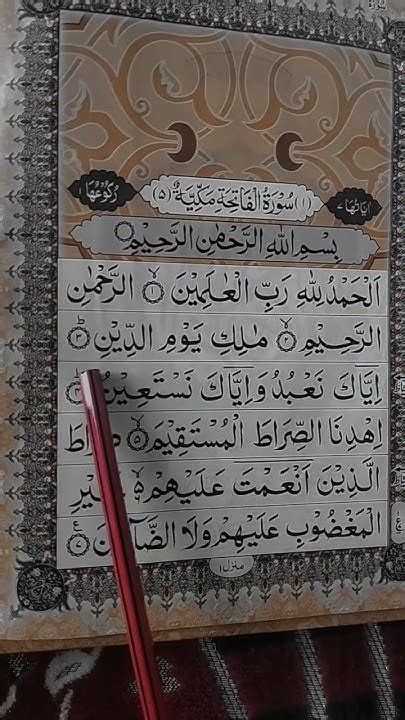 اٰيَاتُهَا ٧ (١) سُوْرَةُ الْفَاتِحَةِ مَكِّيَّةٌ (٥) رُكُوْعُهَا ١
بِسْمِ اللهِ الرَّحْمٰنِ الرَّحِيْمِ
اَلْحَمْدُ لِلّٰهِ رَبِّ الْعٰلَمِيْنَ ۙ﴿١﴾ الرَّحْمٰنِ
الرَّحِيْمِ ۙ﴿٢﴾ مٰلِكِ يَوْمِ الدِّيْنِ ؕ﴿٣﴾
اِيَّاكَ نَعْبُدُ وَاِيَّاكَ نَسْتَعِيْنُ ؕ﴿٤﴾
اِهْدِنَا الصِّرَاطَ الْمُسْتَقِيْمَ ۙ﴿٥﴾ صِرَاطَ
الَّذِيْنَ اَنْعَمْتَ عَلَيْهِمْ ۙ۬ غَيْرِ
الْمَغْضُوْبِ عَلَيْهِمْ وَلَا الضَّآلِّيْنَ ﴿٧﴾ ع
منزل ١